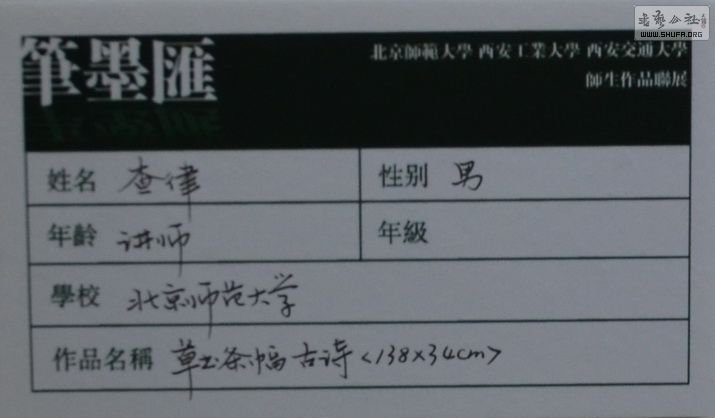 书艺公社
WWW.SHUFA.ORG
筆墨匯
北京師範大學 西安工業大學 西安交通大學
師生作品聯展
姓名 查律 性别 男
年齡 讲师 年級
學校 北京师范大学
作品名稱 草书条幅 古诗<138×34cm>